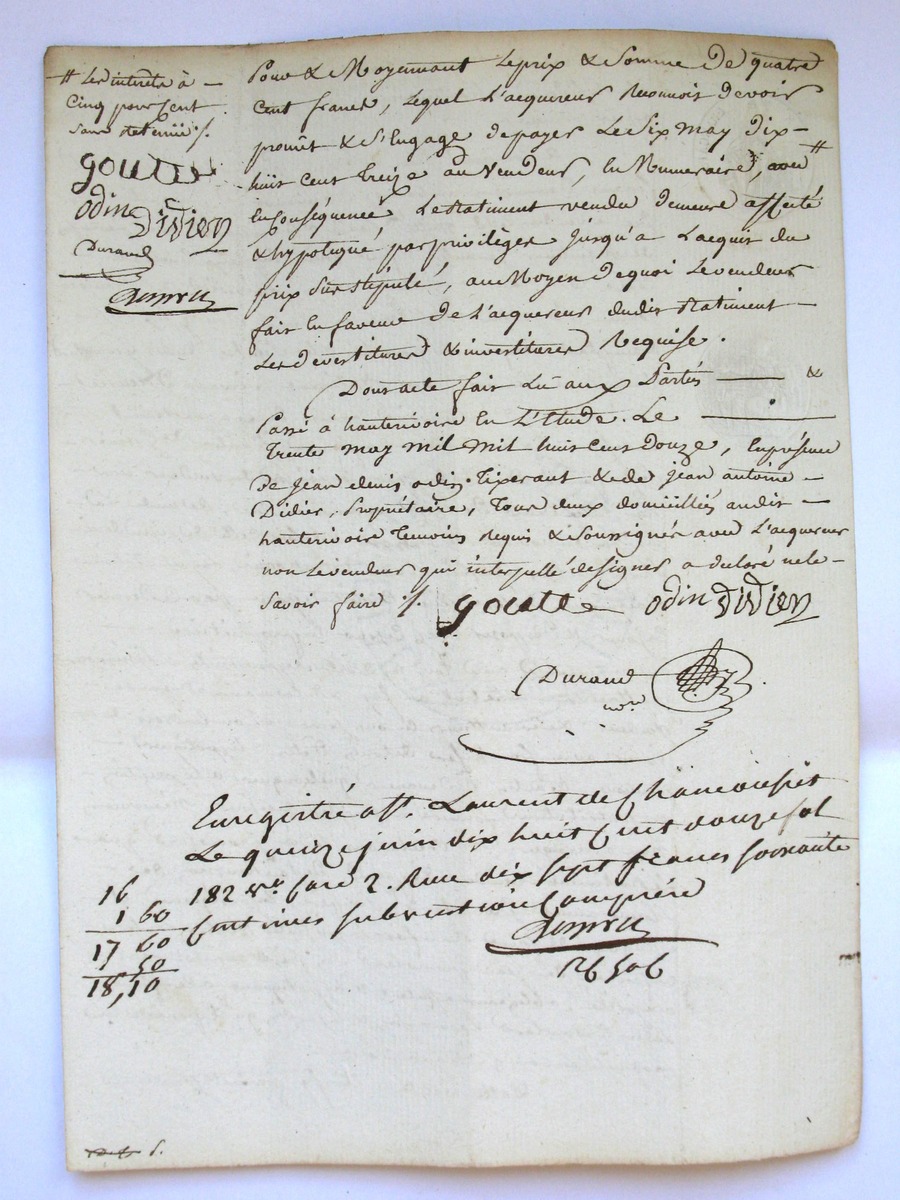 # Les interets à
Cinq pour Cent
sans retenue ./.
goutte
odin Didier
Durand
Pour & Moyennant le prix & Somme De quatre
cent francs, Lequel L'acquereur Reconnoit devoir
promet & S'Engage de payer Le Six may Dix-
huit cent Treize au Vendeur, En Numeraire, avec #
En Conséquence Le Batiment vendu demeure affecté
& hypotequé par privilège jusqu'a L'acquit du
prix Sus stipulé, au Moyen de quoi Le vendeur
fait En faveur De L'acquereur dudit Batiment
Les devestitures & investitures Requise.
Dont acte fait Lu aux Parties — &
Passé à hauterivoire En L'Etude. Le —
Trente may mil mil huit cent Douze, En présence
De Jean denis odin Tixerant & de jean antoine
Didier, Propriétaire, Tous deux domiciliés audit
hauterivoire Temoins Requis & Soussignés avec L'acquereur
non Le vendeur qui interpellé de signer a declaré ne le
Savoir faire ./. goutte odin Didier
Durand
nore
Enregistré a St. Laurent de Chamousset
Le quinze juin dix huit Cent douze fol
182 vo Case 2. Recu dix sept francs soixante
Centimes subvention Comprise
16
1 60
17 60
50
18,10